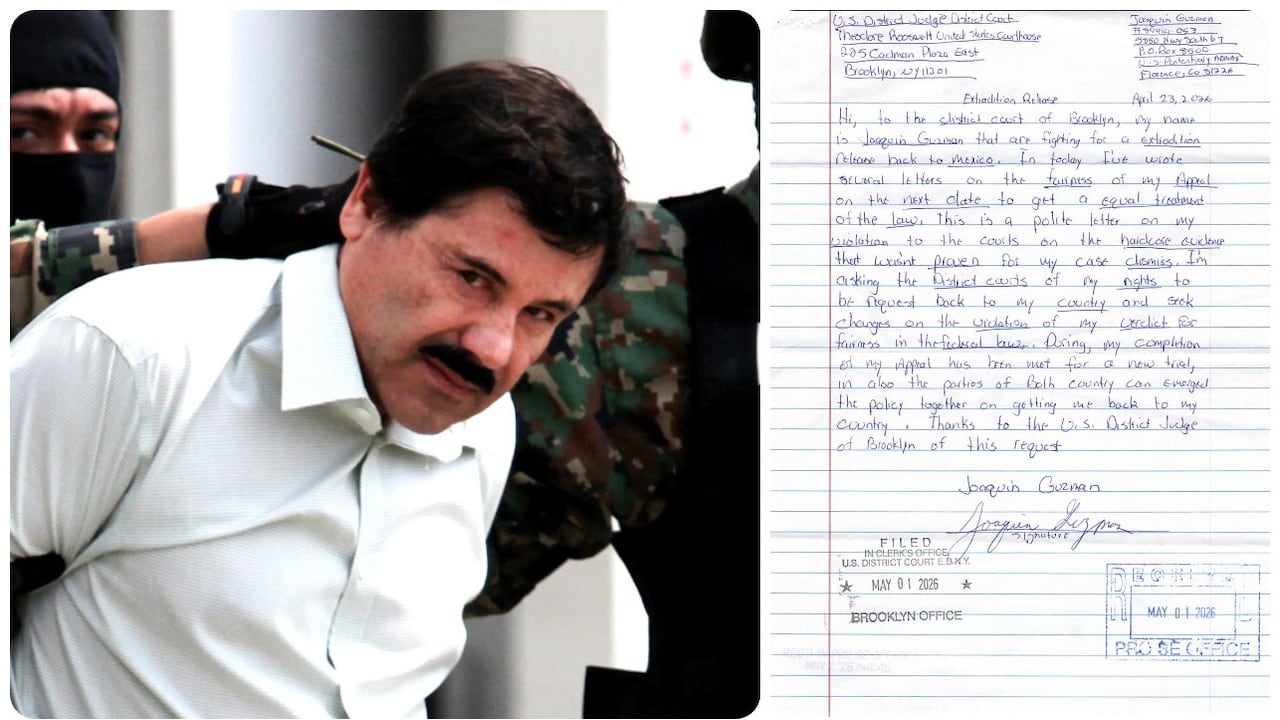 U.S. District Judge District Court
Theodore Roosevelt United States Courthouse
225 Cadman Plaza East
Brooklyn, NY 11201
Joaquin Guzman
P.O. Box 8500
Florence, Co
Extradition Release
April 23, 2026
Hi, to the district court of Brooklyn, my name
is Joaquin Guzman that are fighting for a extradition
release back to mexico. In today I've wrote
several letters on the fairness of my Appeal
on the next date to get a equal treatment
of the law. This is a polite letter on my
violation to the courts on the hardcore evidence
that wasn't proven for my case dismiss. I'm
asking the District courts of my rights to
be request back to my country and seek
changes on the violation of my verdict for
fairness in the federal law. During, my completion
of my Appeal has been met for a new trial,
in also the parties of Both country can emerged
the policy together on getting me back to my
country. Thanks to the U.S. District Judge
of Brooklyn of this request
Joaquin Guzman
Joaquin Guzman
signature
FILED
IN CLERK'S OFFICE
U.S. DISTRICT COURT E.D.N.Y.
★ MAY 01 2026 ★
BROOKLYN OFFICE
MAY 01 2026
PRO SE OFFICE